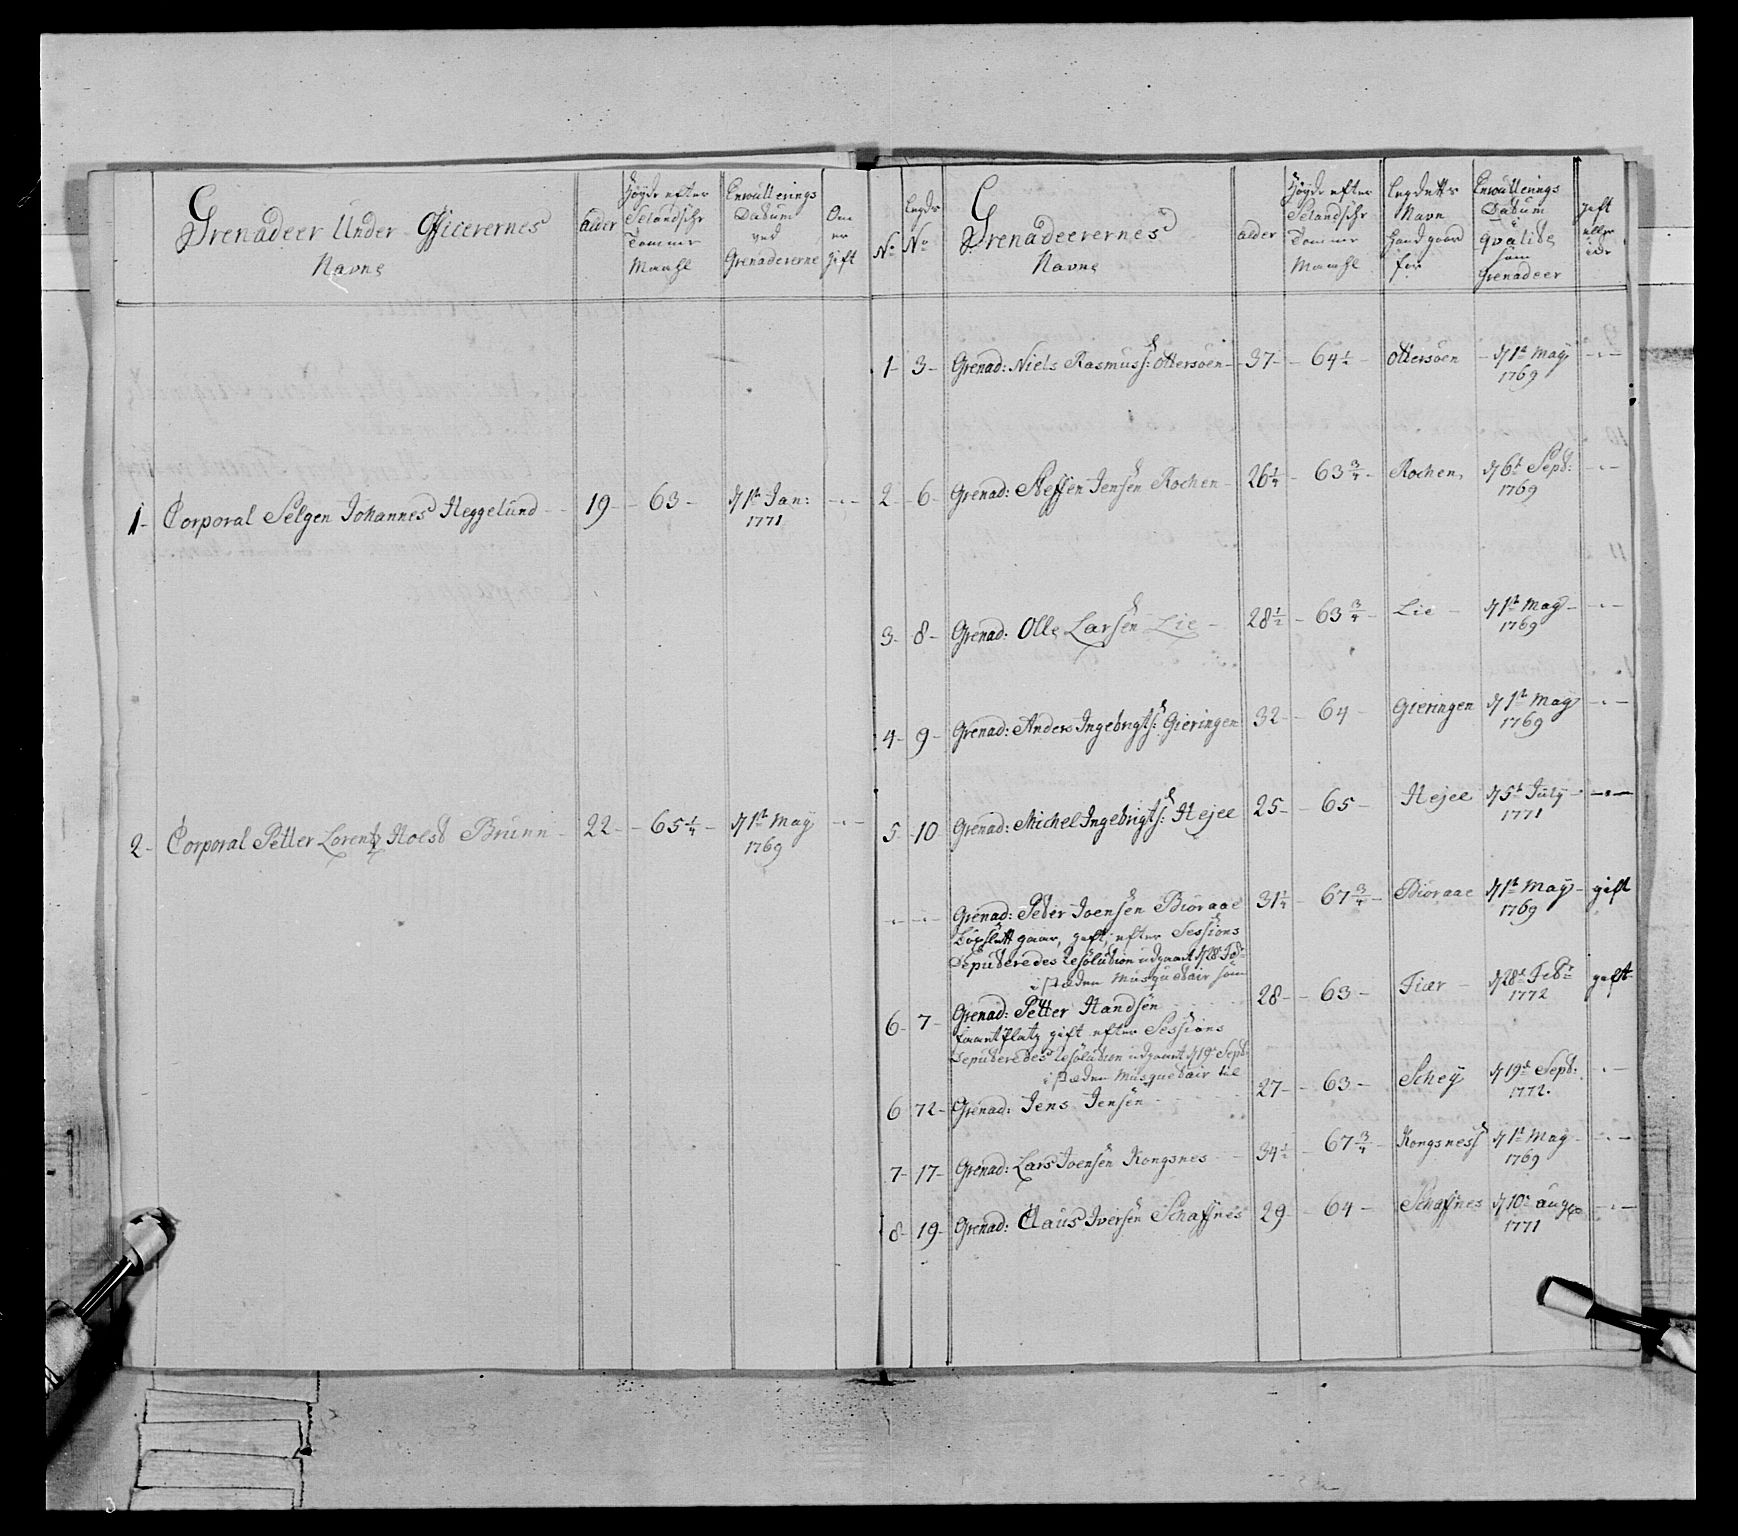 Grenadeer Under Officerernes
Navne
alder
Høyde efter
Selandske
Tommer
Maahl
Enroulterings
Datum
ved
Grenadererne
Om
er
gift
1- Corporal Selgen Johannes Heggelund - 19 - 63 - d 1te Jan: - . -
1771
2- Corporal Petter Lorentz Holst Brunn - 22 - 65 1/4 - d 1te May - . -
1769
No
Legds
No
Grenadeerernes
Navne
alder
Høyde efter
Selandske
Tommer
Maahl
Legdetts
Navn
hand gaard
for
Enroulterings
Datum
i
Qvalite
som
Grenadeer
gift
eller
ide
1- 3- Grenad: Niels Rasmuss: Ottersøen - 37 - 64 1/2 - Ottersøen - d 1te May - . -
1769
2- 6- Grenad: Steffen Jensen Rochen - 26 1/4 - 63 3/4 - Rochen, d 6te Sept: - . -
1769
3- 8- Grenad: Olle Larsen Lie - 28 1/2 - 63 3/4 - Lie - d 1te May - . -
1769
4- 9- Grenad: Anders Ingebrigts: Gieringen 32 - 64 - Gieringen d 1te May - . -
1769
5- 10 Grenad: Michel Ingebrigts: Hejee 25 - 65 - Hejee d 5te July - . -
1771
- . - - . - Grenad: Peder Joensen Bioraae 31 1/4 - 67 3/4 - Bioraae d 1te May - gift
1769
gaar, gift, efter Sessions
Deputeredes Resolution udgaaet d 28 Feb
i steden Musquetair som
6- 7- Grenad: Petter Handsen 28 - 63 - Fiær - d 28te Feb: gift
1772
gift efter Sessions
Deputeredes Resolution udgaaet d 19 Sept:
i steden Musquetair til
6 72- Grenad: Jens Jensen 27 - 63 - Schey d 19te Sept: - . -
1772.
7- 17- Grenad: Lars Joensen Kongsnes - 34 1/2 - 67 3/4 - Kongsness d 1te May - . -
1769
8- 19- Grenad: Claus Iversen Schaffnes 29 - 64 - Schaffnes d 10te aug - . -
1771